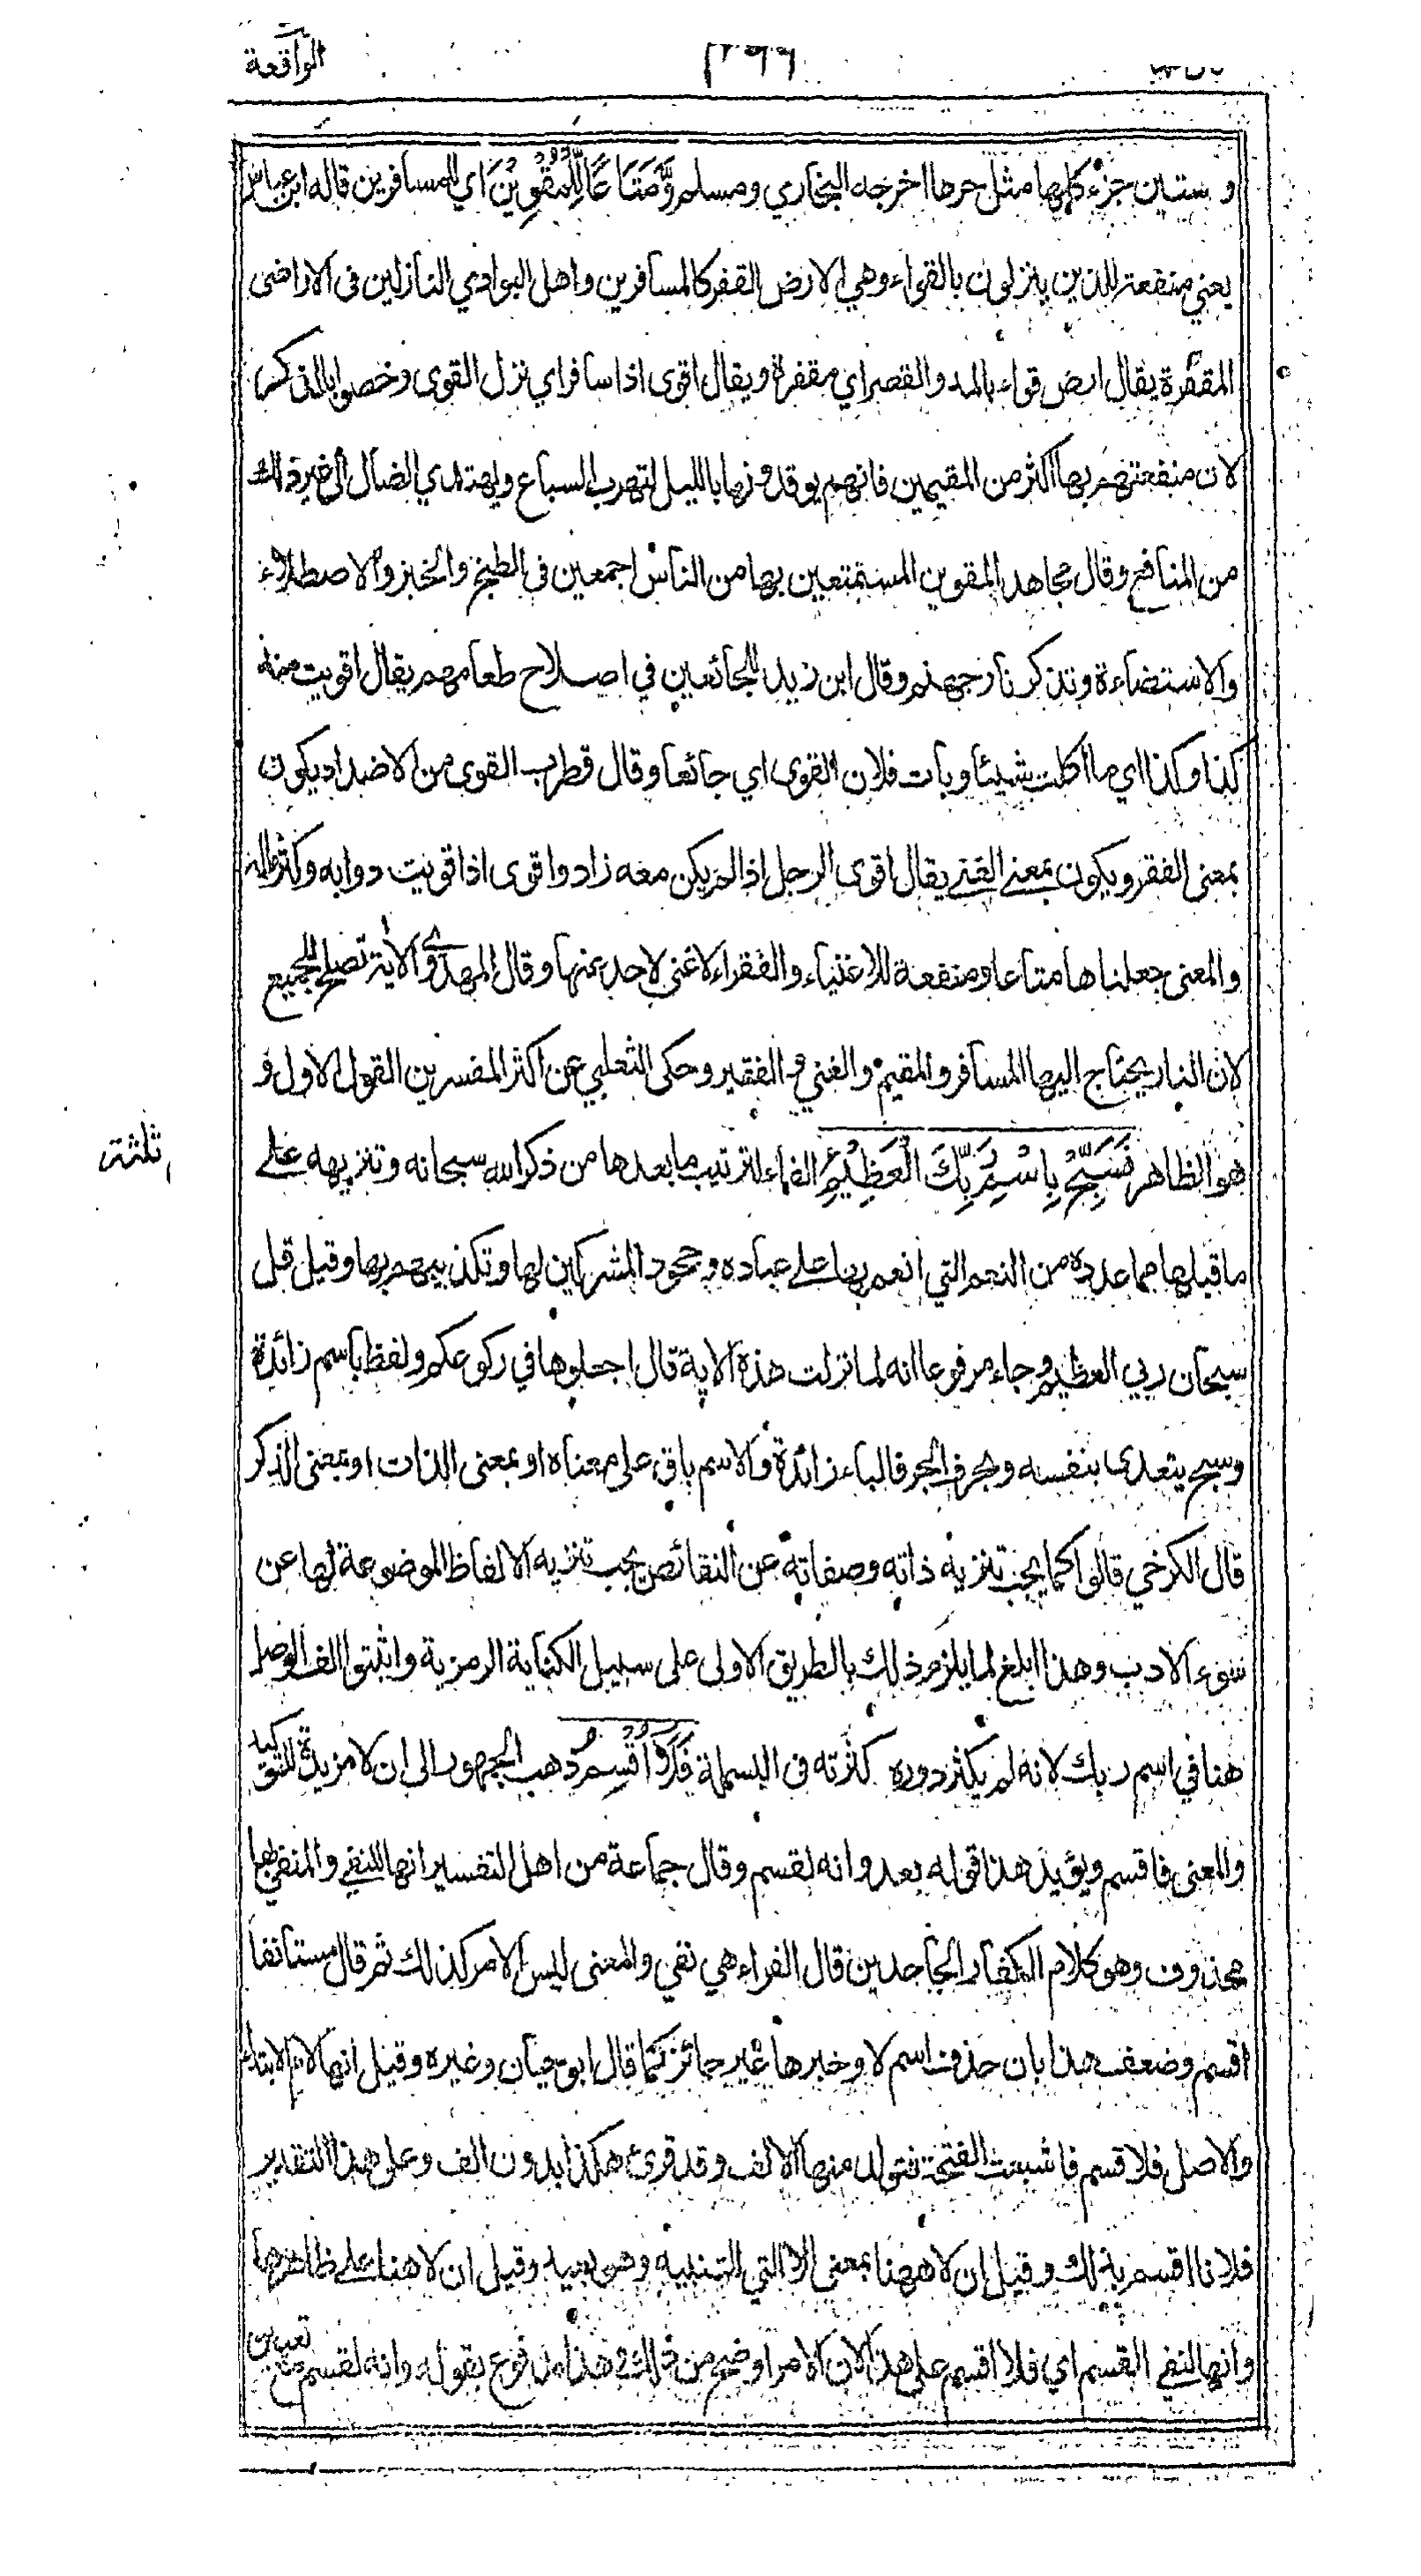 الواقعة
٢٩٩
وستين جزء كلها مثل حرها اخرجه البخاري ومسلم وَّمَتَاعًا لِّلْمُقْوِيْنَ اي للمسافرين قاله ابن عباس
يعني منفعة للذين ينزلون بالقواء وهي الارض القفر كالمسافرين واهل البوادي النازلين في الاراضي
المقفرة يقال ارض قواء بالمد والقصر اي مقفرة ويقال اقوى اذا سافر اي نزل القوى وخصوا بالذكر
لان منفعتهم بها اكثر من المقيمين فانهم يوقدونها بالليل لتهرب السباع ويهتدي الضال الى غير ذلك
من المنافع وقال مجاهد المقوين المستمتعين بها من الناس اجمعين في الطبخ والخبز والاصطلاء
والاستضاءة وتذكر نار جهنم وقال ابن زيد للجائعين في اصلاح طعامهم يقال اقويت منذ
كذا وكذا اي ما اكلت شيئا وبات فلان القوى اي جائعا وقال قطرب القوى من الاضداد يكون
بمعنى الفقر ويكون بمعنى الغنى يقال اقوى الرجل اذا لم يكن معه زاد واقوى اذا قويت دوابه وكثر ماله
والمعنى جعلناها متاعا ومنفعة للاغنياء والفقراء لا غنى لاحد عنها وقال المهدوي الآية تصلح للجميع
لان النار يحتاج اليها المسافر والمقيم والغني والفقير وحكى الثعلبي عن اكثر المفسرين القول الاول و
هو الظاهر فَسَبِّحْ بِاسْمِ رَبِّكَ الْعَظِيْمِ الفاء لترتيب ما بعدها من ذكر الله سبحانه وتنزيهه على
ثلثة
ما قبلها مما عدده من النعم التي انعم بها على عباده وجحود المشركين لها وتكذيبهم بها وقيل قل
سبحان ربي العظيم وجاء مرفوعا انه لما نزلت هذه الاية قال اجعلوها في ركوعكم ولفظ باسم زائدة
وسبح يتعدى بنفسه وبحرف الجر فالباء زائدة والاسم باق على معناه او بمعنى الذات او بمعنى الذكر
قال الكرخي قالوا كما يجب تنزيه ذاته وصفاته عن النقائص يجب تنزيه الالفاظ الموضوعة لها عن
سوء الادب وهذا ابلغ لما يلزم ذلك بالطريق الاولى على سبيل الكناية الرمزية واثبتوا الف الوصل
هنا في اسم ربك لانه لم يكثر دوره كثرته في البسملة فَلَآ اُقْسِمُ ذهب الجمهور الى ان لا مزيدة للتوكيد
والمعنى فاقسم ويؤيد هذا قوله بعد وانه لقسم وقال جماعة من اهل التفسير انها للنفي والمنفي بها
محذوف وهو كلام الكفار الجاحدين قال الفراء هي نفي والمعنى ليس الامر كذلك ثم قال مستانفا
اقسم وضعف هذا بان حذف اسم لا وخبرها غير جائز كما قال ابو حيان وغيره وقيل انها لام الابتداء
والاصل فلاقسم فاشبعت الفتحة فتولد منها الالف وقد قرئ هكذا بدون الف وعلى هذا التقدير
فلانا اقسم بذلك وقيل ان لا ههنا بمعنى الا التي للتنبيه وهو بعيد وقيل ان لا هنا على ظاهرها
وانها لنفي القسم اي فلا اقسم على هذا لان الامر اوضح من ذلك وهذا مدفوع بقوله وانه لقسم مع تعيين